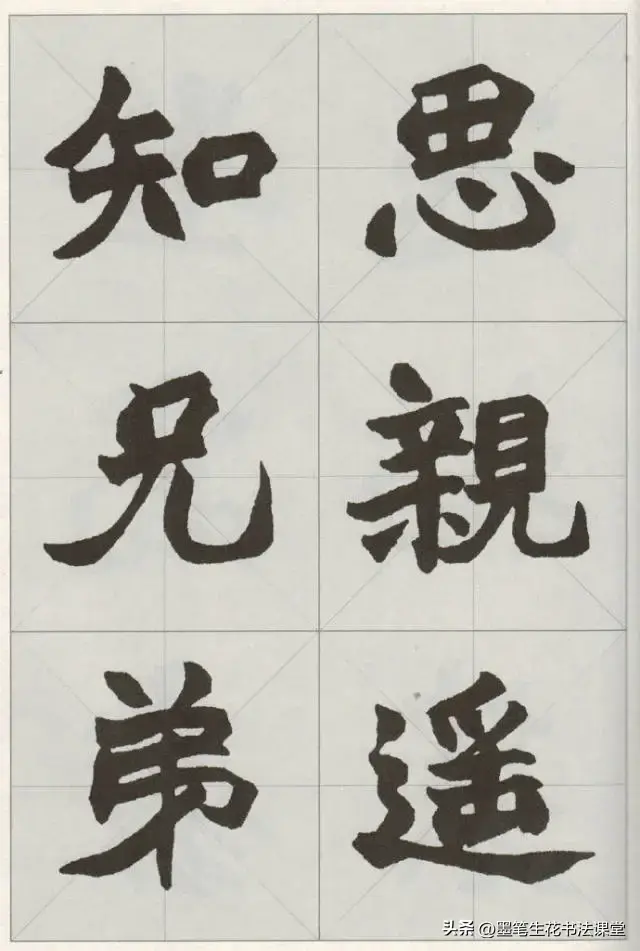 思親遥
知兄弟
头条 @墨笔生花书法课堂